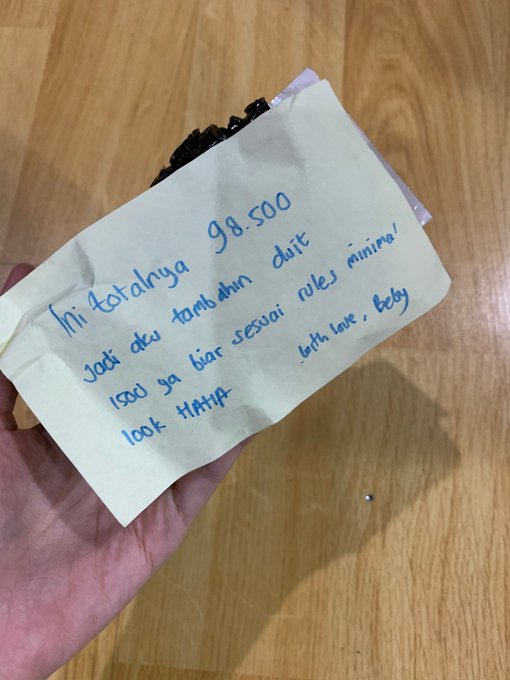 Ini totalnya 98.500
Jadi aku tambahin duit
1500 ya biar sesuai rules minimal
100k HAHA
With love, Beby